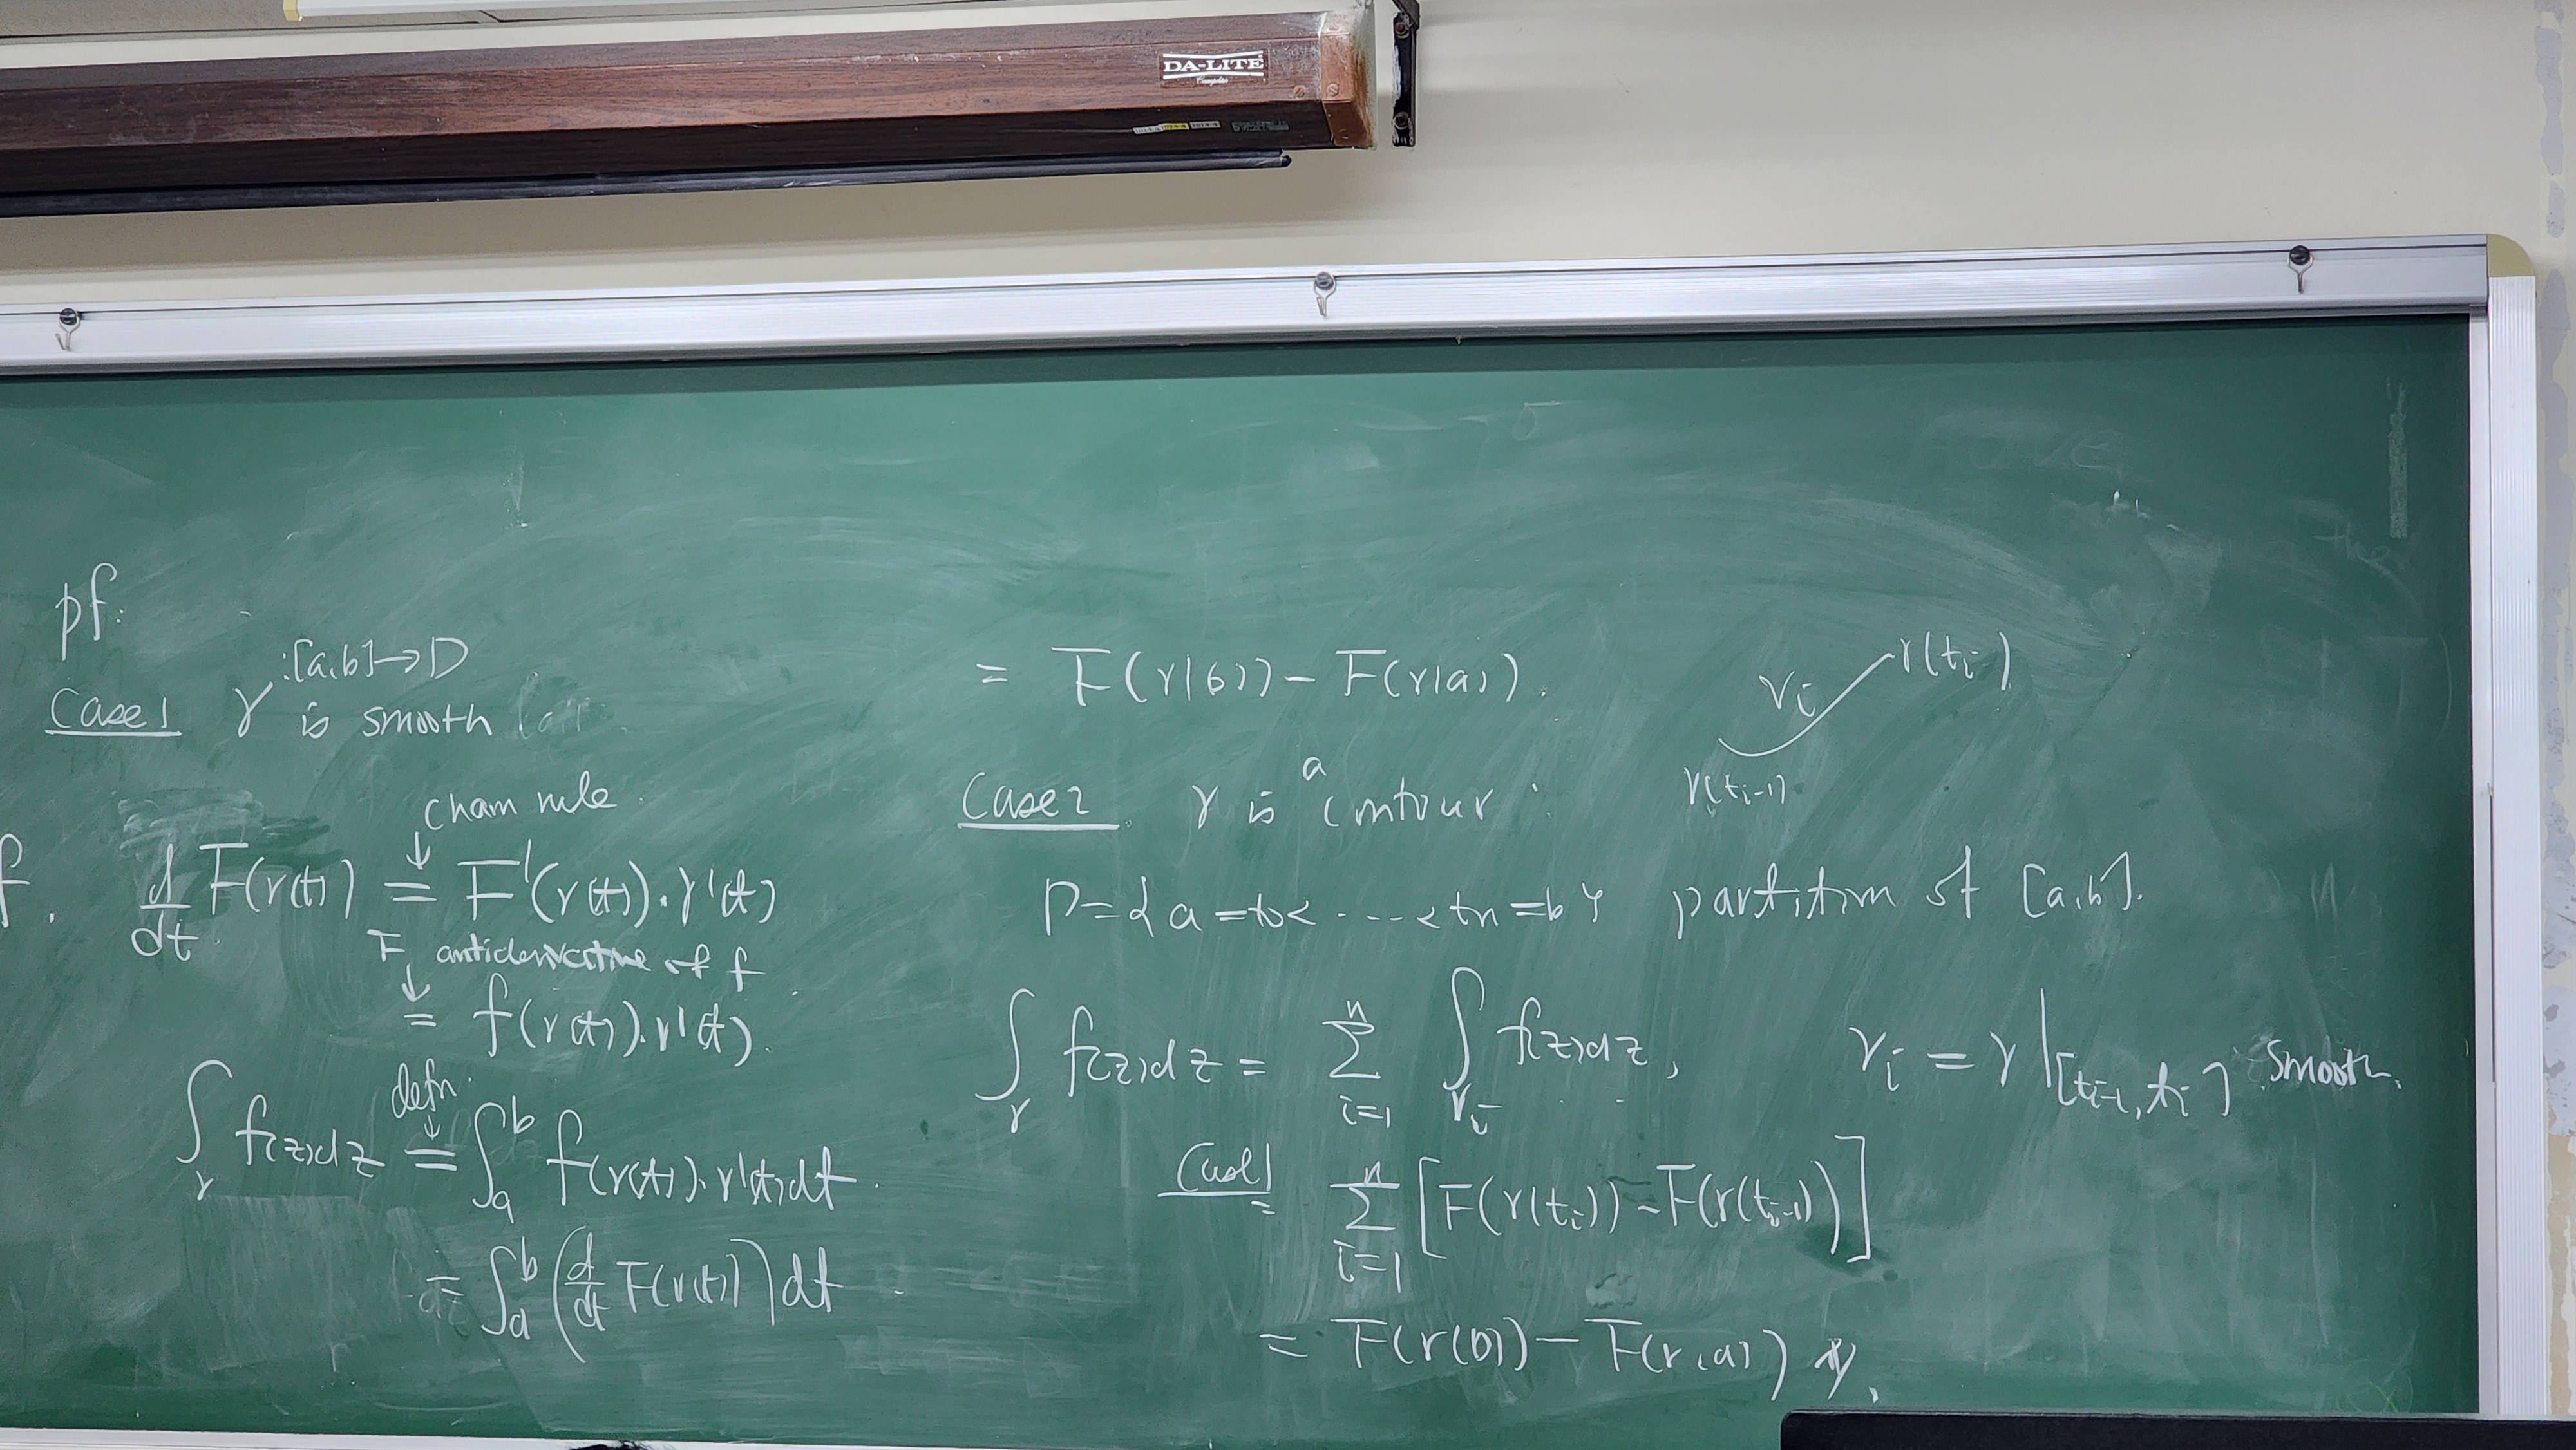 DA-LITE
pf:
:[a,b]→D
Case 1 γ is smooth
chain rule
f. d/dt F(γ(t)) = F'(γ(t))·γ'(t)
F antiderivative of f
= f(γ(t))·γ'(t).
defn.
∫_γ f(z)dz = ∫_a^b f(γ(t))·γ'(t)dt.
= ∫_a^b (d/dt F(γ(t)))dt
= F(γ(b)) - F(γ(a)).
γi γ(ti)
γ(ti-1)
Case 2 γ is a contour
P={a=t0<---<tn=b} partition of [a,b].
∫_γ f(z)dz = Σ_{i=1}^n ∫_{γi} f(z)dz, γi = γ|[ti-1, ti] smooth.
Case 1 = Σ_{i=1}^n [F(γ(ti)) - F(γ(ti-1))]
= F(γ(b)) - F(γ(a))